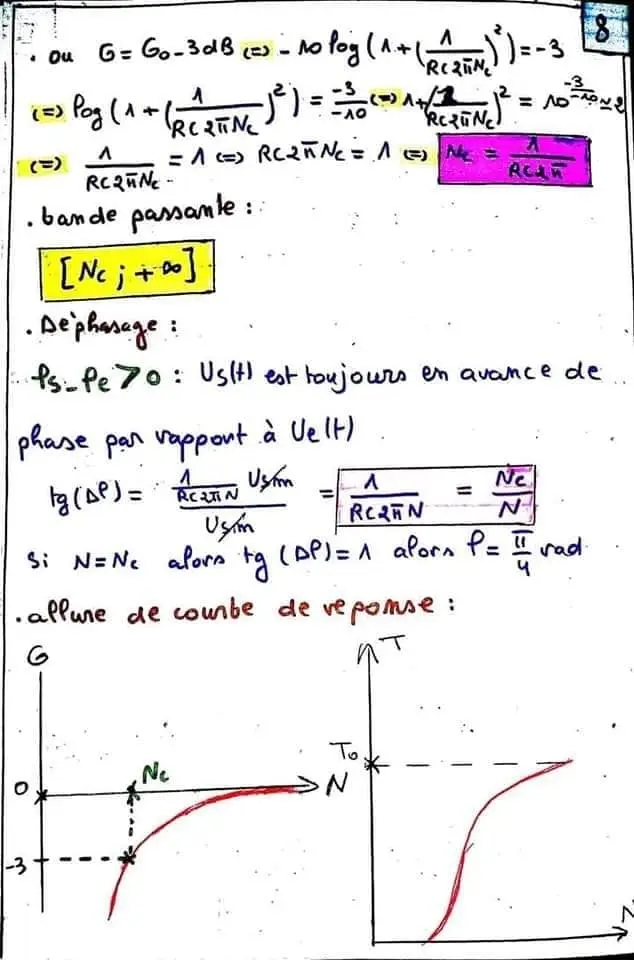 8
. ou G = G₀ - 3dB (=) - 10 log (1 + (1/RC2πNc)²) = -3
(=) log (1 + (1/RC2πNc)²) = -3/-10 (=) 1 + (1/RC2πNc)² = 10^(-3/-10) ≃ 2
(=) 1/RC2πNc = 1 (=) RC2πNc = 1 (=) Nc = 1/RC2π
. bande passante :
[Nc ; + ∞]
. Déphasage :
φs - φe > 0 : Us(t) est toujours en avance de
phase par rapport à Ue(t)
tg(Δφ) = (1/RC2πN Usm)/Usm = 1/RC2πN = Nc/N
Si N = Nc alors tg (Δφ) = 1 alors φ = π/4 rad
. allure de courbe de reponse :
G
T
Nc
T₀
0
N
-3
N